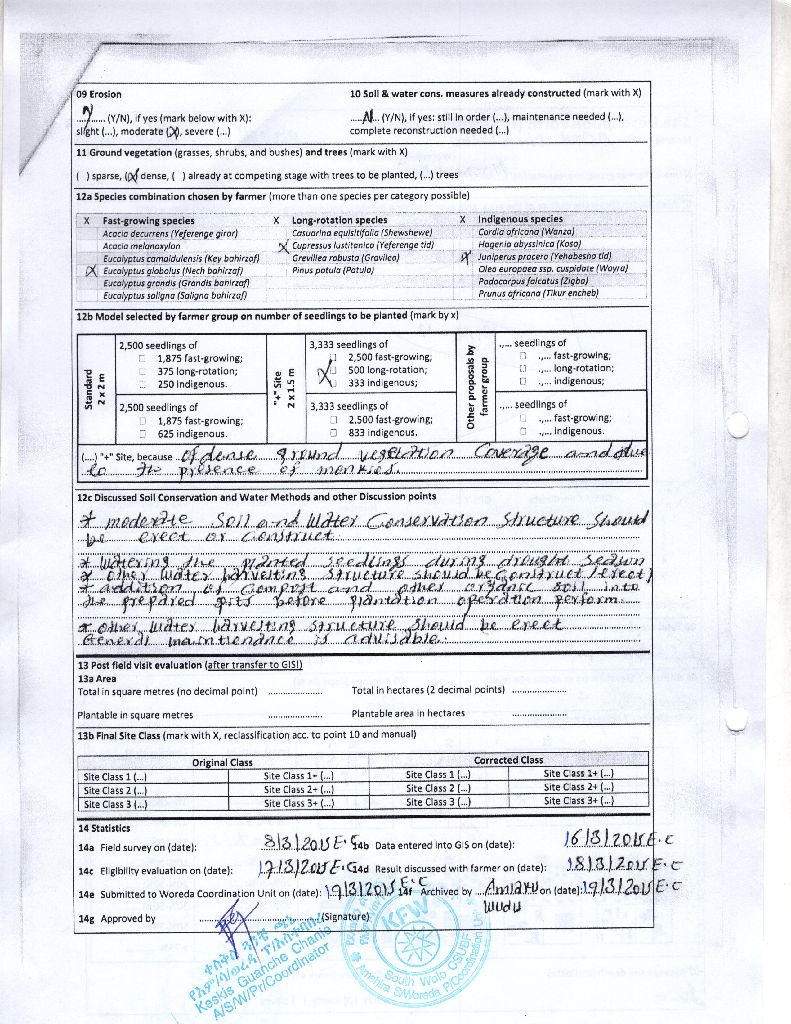 09 Erosion 10 Soil & water cons. measures already constructed (mark with X)
..Y..... (Y/N), if yes (mark below with X): .....N... (Y/N), if yes: still in order (...), maintenance needed (...),
slight (...), moderate (X), severe (...) complete reconstruction needed (...)
11 Ground vegetation (grasses, shrubs, and bushes) and trees (mark with X)
( ) sparse, (X) dense, ( ) already at competing stage with trees to be planted, (...) trees
12a Species combination chosen by farmer (more than one species per category possible)
X Fast-growing species X Long-rotation species X Indigenous species
Acacia decurrens (Yeferenge girar) Casuarina equisitifolia (Shewshewe) Cordia africana (Wanza)
Acacia melanoxylon X Cupressus lustitanica (Yeferenge tid) Hagenia abyssinica (Koso)
Eucalyptus camaldulensis (Key bahirzaf) Grevillea robusta (Gravilea) X Juniperus procera (Yehabesha tid)
X Eucalyptus globolus (Nech bahirzaf) Pinus patula (Patula) Olea europaea ssp. cuspidate (Woyra)
Eucalyptus grandis (Grandis bahirzaf) Podocarpus falcatus (Zigba)
Eucalyptus saligna (Saligna bahirzaf) Prunus africana (Tikur encheb)
12b Model selected by farmer group on number of seedlings to be planted (mark by x)
Standard
2 x 2 m
2,500 seedlings of
1,875 fast-growing;
375 long-rotation;
250 indigenous.
2,500 seedlings of
1,875 fast-growing;
625 indigenous.
"+" Site
2 x 1.5 m
3,333 seedlings of
2,500 fast-growing;
X 500 long-rotation;
333 indigenous;
3,333 seedlings of
2,500 fast-growing;
833 indigenous.
Other proposals by
farmer group
.,... seedlings of
.,... fast-growing;
.,... long-rotation;
.,... indigenous;
.,... seedlings of
.,... fast-growing;
.,... indigenous.
(....) "+" Site, because of dense ground vegetation Coverage and due
to the presence of monkies.
12c Discussed Soil Conservation and Water Methods and other Discussion points
* moderate Soil and Water Conservation Structure Should
be erect or Construct.
* Watering the planted seedlings during drought season
* other water harvisting structure should be construct (erect)
* addition of compost and other organic soil into
the prepared pits before plantation operation perform.
* other water harvisting structure should be erect
General maintienance is advisable.
13 Post field visit evaluation (after transfer to GIS!)
13a Area
Total in square metres (no decimal point) .................. Total in hectares (2 decimal points) ..................
Plantable in square metres .................. Plantable area in hectares ..................
13b Final Site Class (mark with X, reclassification acc. to point 10 and manual)
Original Class Corrected Class
Site Class 1 (...) Site Class 1+ (...) Site Class 1 (...) Site Class 1+ (...)
Site Class 2 (...) Site Class 2+ (...) Site Class 2 (...) Site Class 2+ (...)
Site Class 3 (...) Site Class 3+ (...) Site Class 3 (...) Site Class 3+ (...)
14 Statistics
14a Field survey on (date): 8/3/2015 E.C 14b Data entered into GIS on (date): 16/3/2015 E.C
14c Eligibility evaluation on (date): 17/3/2015 E.C 14d Result discussed with farmer on (date): 18/3/2015 E.C
14e Submitted to Woreda Coordination Unit on (date): 19/3/2015 E.C 14f Archived by Amlaku Wudu on (date): 19/3/2015 E.C
14g Approved by .................. (Signature)
Keskis Guanche Chanie
A/S/W/Pr/Coordinator
KFW
South Wolo CSUBF
Amehra S/Woreda P/Coordination Unit